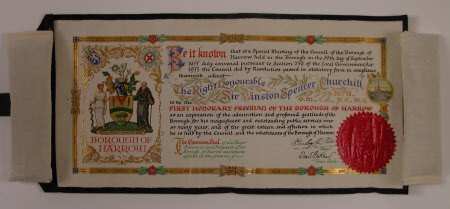 Be it known that at a Special Meeting of the Council of the Borough of
Harrow held in the Borough on the day of September
1955 duly convened pursuant to Section 259 of the Local Government Act
1933 the Council did by Resolution passed in statutory form in compliance
therewith admit
The Right Honourable
Sir Winston Spencer Churchill
to be the
FIRST HONORARY FREEMAN OF THE BOROUGH OF HARROW
as an expression of the admiration and profound gratitude of the
Borough for his magnificent and outstanding public services over
so many years, and of the great esteem and affection in which
he is held by the Council and the inhabitants of the Borough of Harrow.
The Common Seal of the Mayor
Aldermen and Burgesses of the
Borough of Harrow was hereunto
affixed in the presence of
BOROUGH OF
HARROW